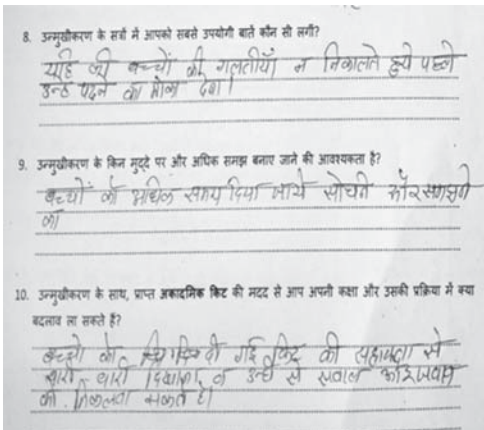 8. उन्मुखीकरण के सत्रों में आपको सबसे उपयोगी बातें कौन सी लगीं?
यहि की बच्चों की गलतीयाँ न निकालते हुये पहले
उन्हे पढने का मोका देना।
9. उन्मुखीकरण के किन मुद्दे पर और अधिक समझ बनाए जाने की आवश्यकता है?
बच्चों को अधिक समय दिया जाये सोचने और समझने
का
10. उन्मुखीकरण के साथ, प्राप्त अकादमिक किट की मदद से आप अपनी कक्षा और उसकी प्रक्रिया में क्या
बदलाव ला सकते है?
बच्चो को दी गई किट की सहायता से
बारी बारी दिखाकर व उन्ही से सवाल और जवाब
को निकलवा सकते है।